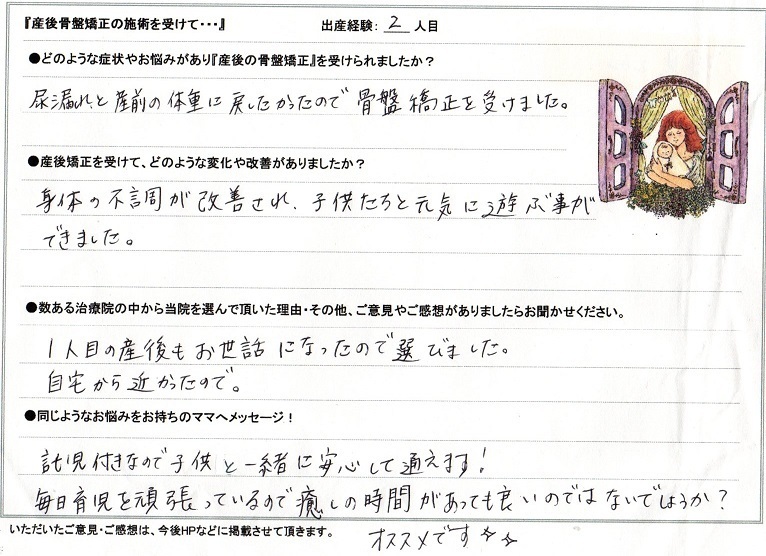 『産後骨盤矯正の施術を受けて・・・』 出産経験: 2 人目
●どのような症状やお悩みがあり『産後の骨盤矯正』を受けられましたか？
尿漏れと産前の体重に戻したかったので骨盤矯正を受けました。
●産後矯正を受けて、どのような変化や改善がありましたか？
身体の不調が改善され、子供たちと元気に遊ぶ事が
できました。
●数ある治療院の中から当院を選んで頂いた理由・その他、ご意見やご感想がありましたらお聞かせください。
1人目の産後もお世話になったので選びました。
自宅から近かったので。
●同じようなお悩みをお持ちのママへメッセージ！
託児付きなので子供と一緒に安心して通えます！
毎日育児を頑張っているので癒しの時間があっても良いのではないでしょうか？
オススメです☆☆
いただいたご意見・ご感想は、今後HPなどに掲載させて頂きます。